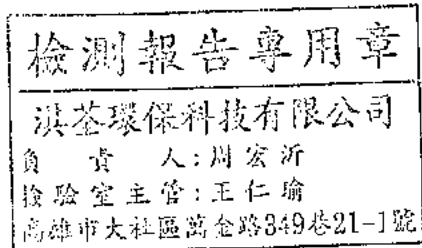 檢測報告專用章
淇荃環保科技有限公司
負責人:周宏沂
檢驗室主管:王仁瑜
高雄市大社區萬金路349巷21-1號